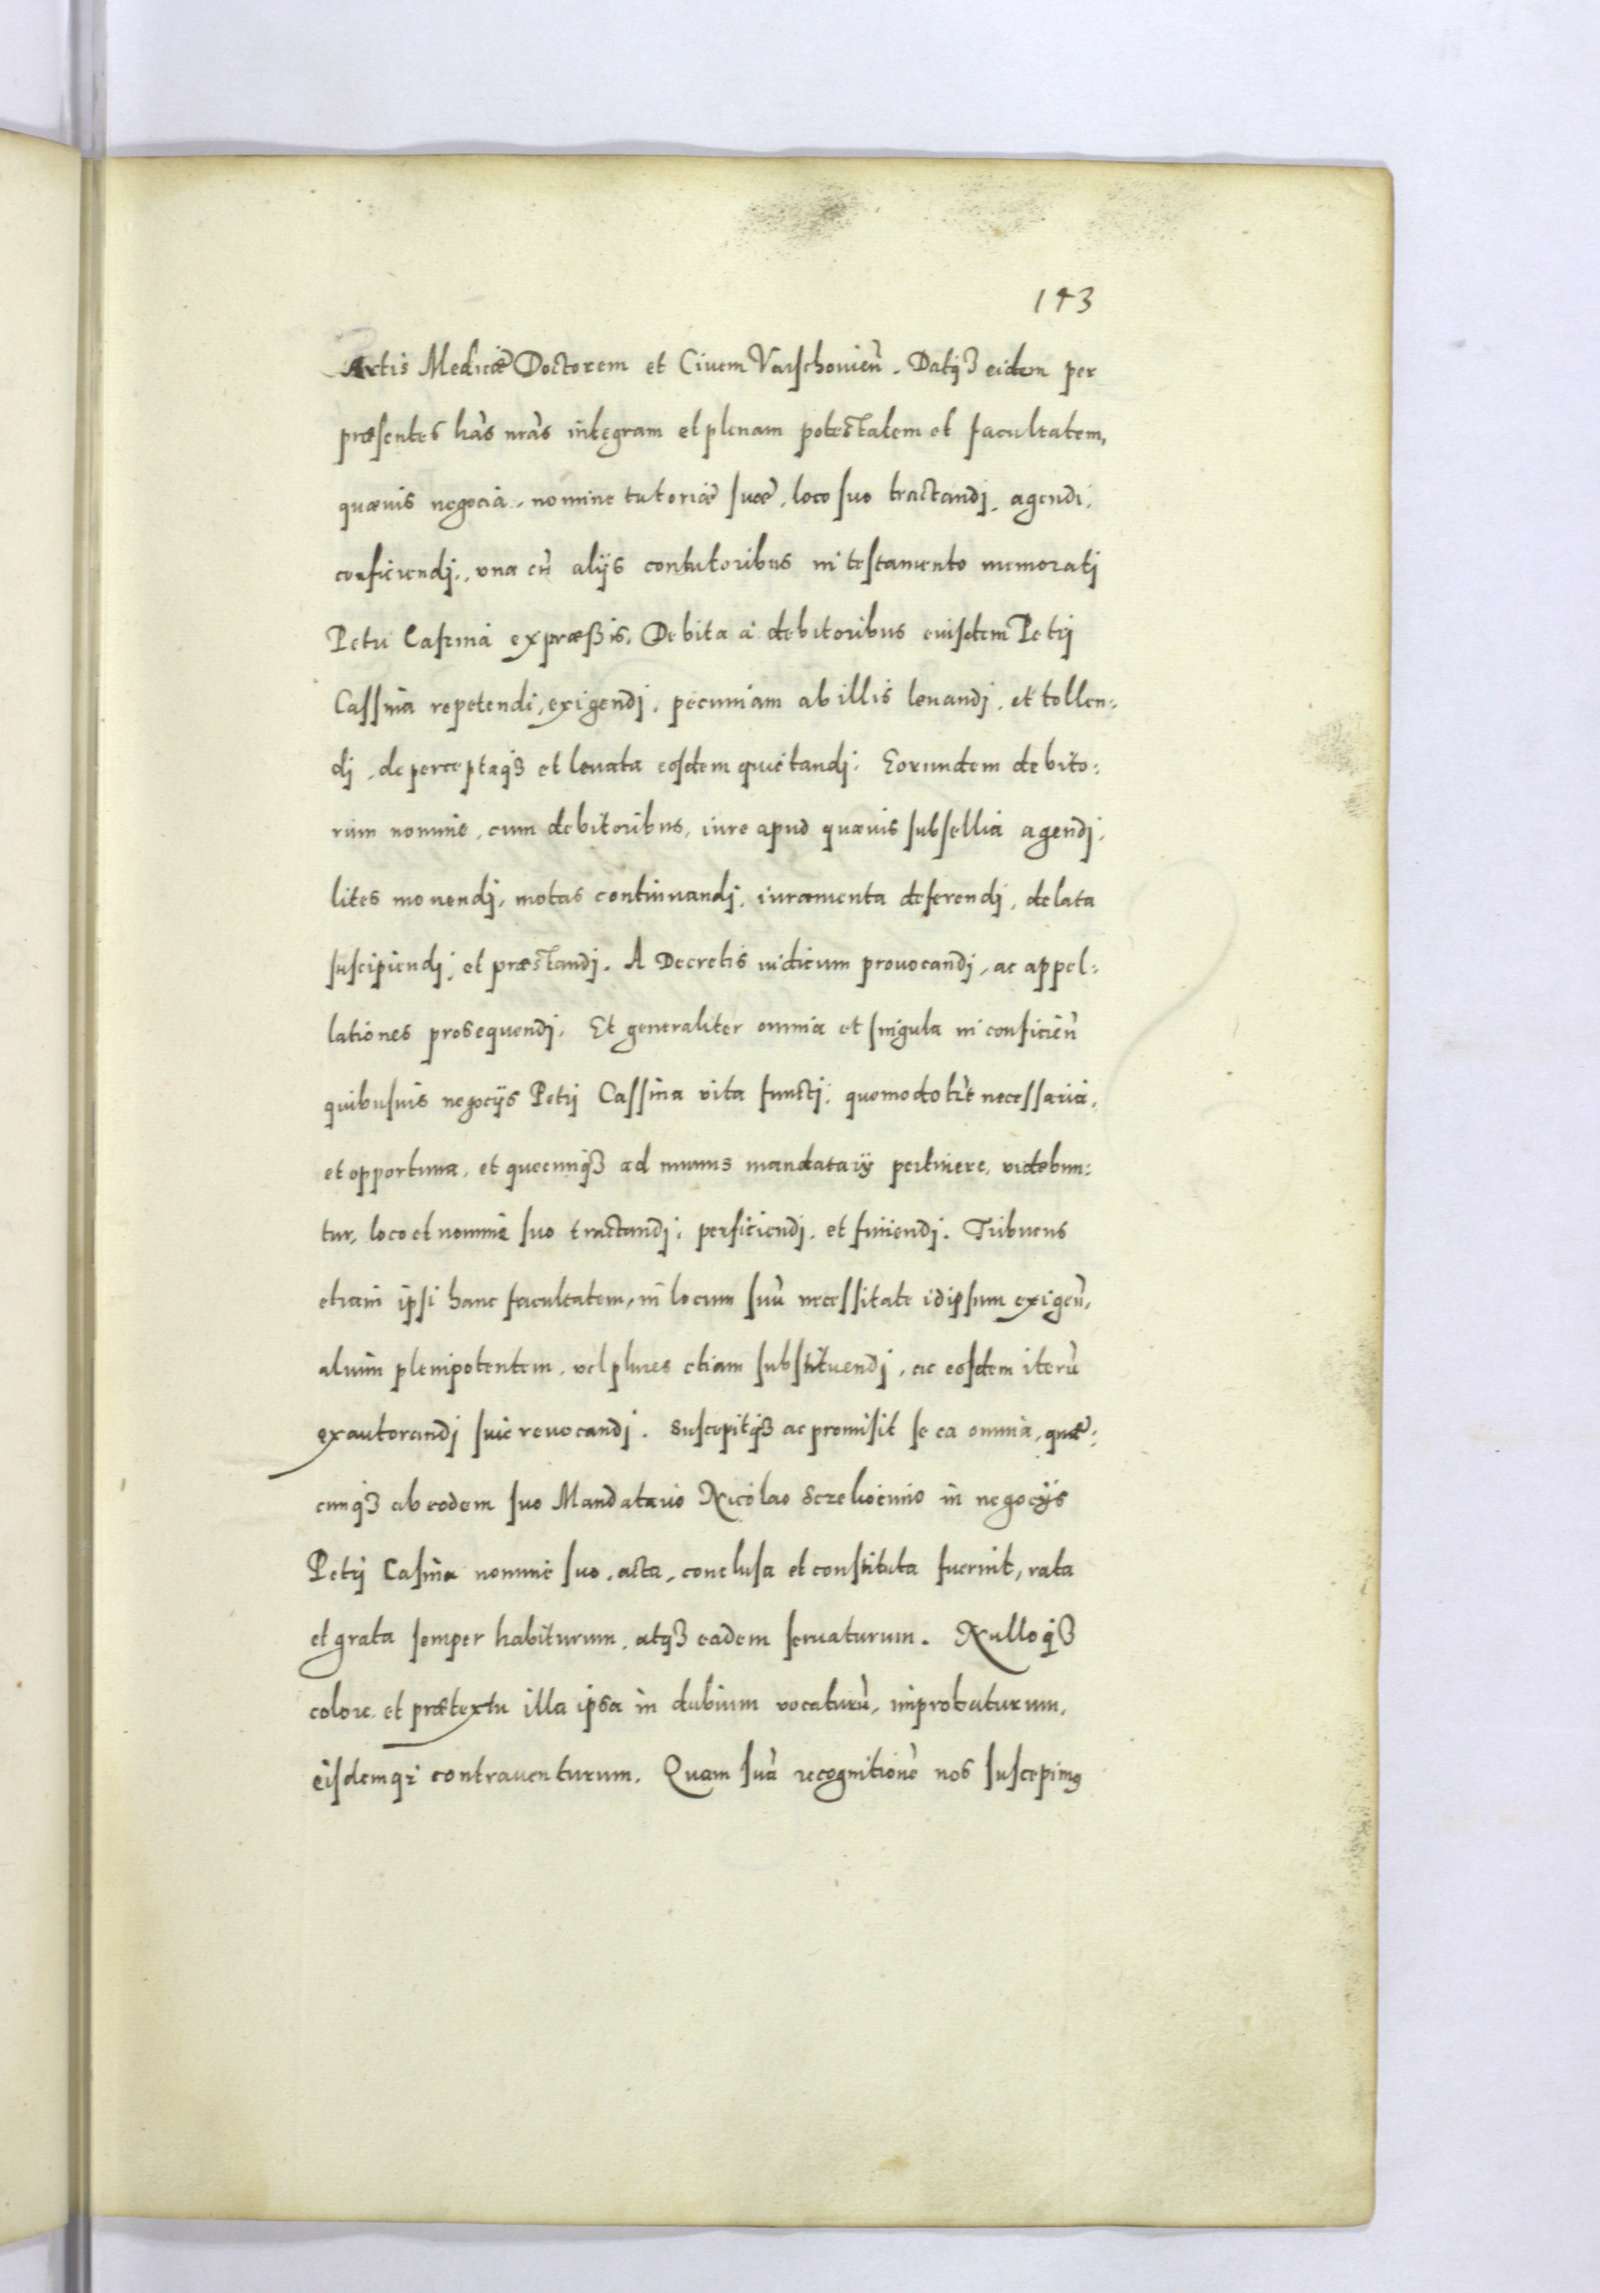 143
Artis Medicæ Doctorem et Civem Varschovien̄. Datq3 eidem per
præsentes hãs nrãs integram et plenam potestatem et facultatem,
quævis negocia, nomine tutoriæ suæ, loco suo tractandj, agendi,
conficiendj, vna cũ alijs contutoribus in testamento memorati
Petri Casina expræssis. Debita à debitoribus euisdem Petrj
Cassina repetendi, exigendj, pecuniam ab illis leuandj, et tollen:
dj, de perceptaq3 et leuata eosdem quietandj. Eorundem debito:
rum nomine, cum debitoribus, iure apud quævis subsellia agendj,
lites mouendj, motas continuandj, iuramenta deferendj, delata
suscipiendj, et præstandj. A Decretis iudicum prouocandj, ac appel:
lationes prosequendj. Et generaliter omnia et singula in conficien̄
quibusuis negocijs Petrj Cassina vita functj, quomodolr̃e necessaria,
et opportuna, et quecunq3 ad munus mandatarij pertinere, videbun:
tur, loco et nomine suo tractandj, perficiendj, et finiendj. Tribuens
etiam ipsi hanc facultatem, in locum suũ necessitate idipsum exigen̄,
alium plenipotentem, vel plures etiam substituendj, ac eosdem iterũ
exautorandj siue reuocandj. Suscepitq3 ac promisit se ea omnia, quæ:
cunq3 ab eodem suo Mandatario Nicolao in negocijs
Petrj Casina nomine suo, acta, conclusa et constituta fuerint, rata
et grata semper habiturum, atq3 eadem seruaturum. Nulloq3
colore et prætextu illa ipsa in dubium vocaturũ, improbaturum,
eisdemqz contrauenturum. Quam suã recognitionẽ nos suscepimg